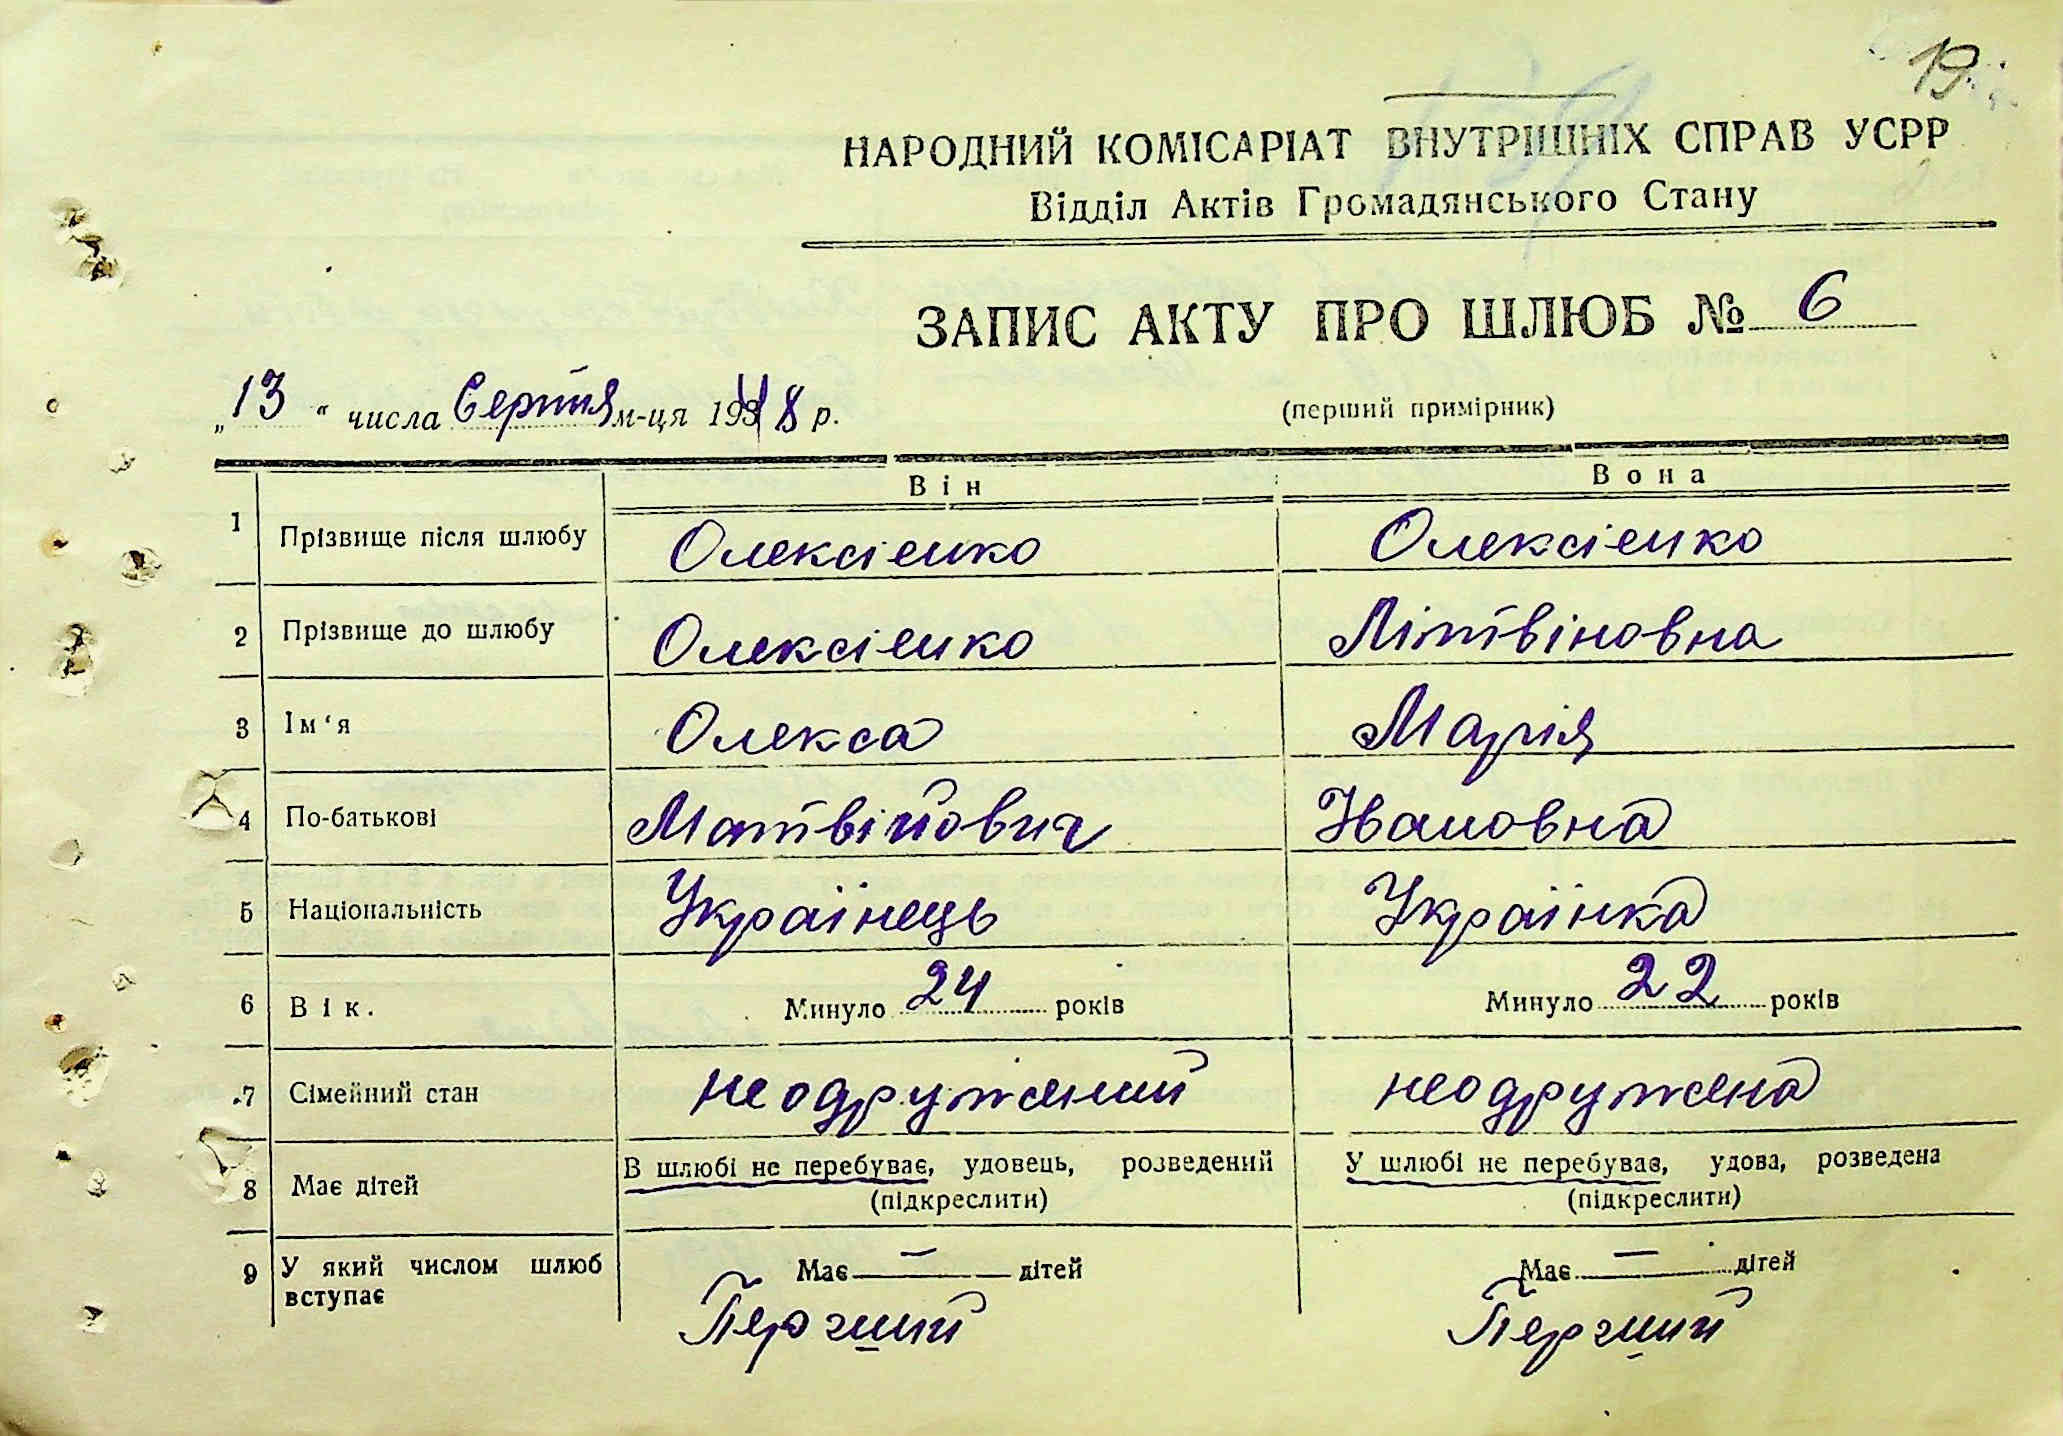 19
НАРОДНИЙ КОМІСАРІАТ ВНУТРІШНІХ СПРАВ УСРР
Відділ Актів Громадянського Стану
ЗАПИС АКТУ ПРО ШЛЮБ № 6
„13“ числа Серпня м-ця 1948 р.
(перший примірник)
Він Вона
1 Прізвище після шлюбу Олексієнко Олексієнко
2 Прізвище до шлюбу Олексієнко Літвіновна
3 Ім‘я Олекса Марія
4 По-батькові Матвійович Івановна
5 Національність Українець Українка
6 Вік. Минуло 24 років Минуло 22 років
7 Сімейний стан неодружений неодружена
В шлюбі не перебуває, удовець, розведений У шлюбі не перебуває, удова, розведена
8 Має дітей (підкреслити) (підкреслити)
9 У який числом шлюб Має — дітей Має — дітей
вступає Перший Перший